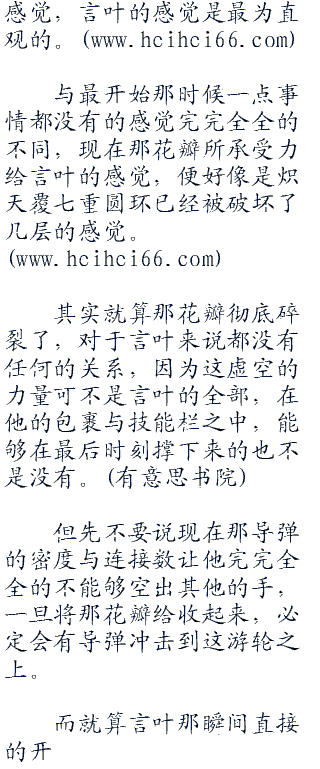 感觉，言叶的感觉是最为直
观的。(www.hcihci66.com)
与最开始那时候一点事
情都没有的感觉完完全全的
不同，现在那花瓣所承受力
给言叶的感觉，便好像是炽
天覆七重圆环已经被破坏了
几层的感觉。
(www.hcihci66.com)
其实就算那花瓣彻底碎
裂了，对于言叶来说都没有
任何的关系，因为这虚空的
力量可不是言叶的全部，在
他的包裹与技能栏之中，能
够在最后时刻撑下来的也不
是没有。(有意思书院)
但先不要说现在那导弹
的密度与连接数让他完完全
全的不能够空出其他的手，
一旦将那花瓣给收起来，必
定会有导弹冲击到这游轮之
上。
而就算言叶那瞬间直接
的开